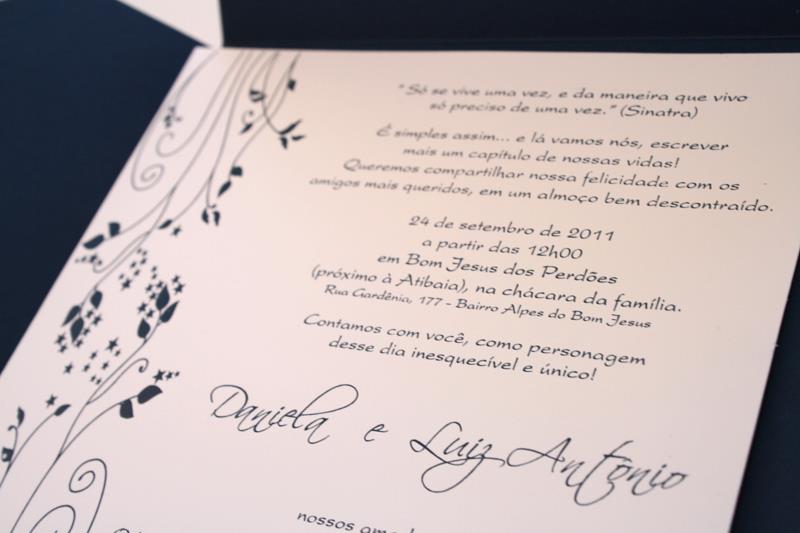 "Só se vive uma vez, e da maneira que vivo
só preciso de uma vez." (Sinatra)
É simples assim... e lá vamos nós, escrever
mais um capítulo de nossas vidas!
Queremos compartilhar nossa felicidade com os
amigos mais queridos, em um almoço bem descontraído.
24 de setembro de 2011
a partir das 12h00
em Bom Jesus dos Perdões
(próximo à Atibaia), na chácara da família.
Rua Gardênia, 177 - Bairro Alpes do Bom Jesus
Contamos com você, como personagem
desse dia inesquecível e único!
Daniela e Luiz Antônio
nossos